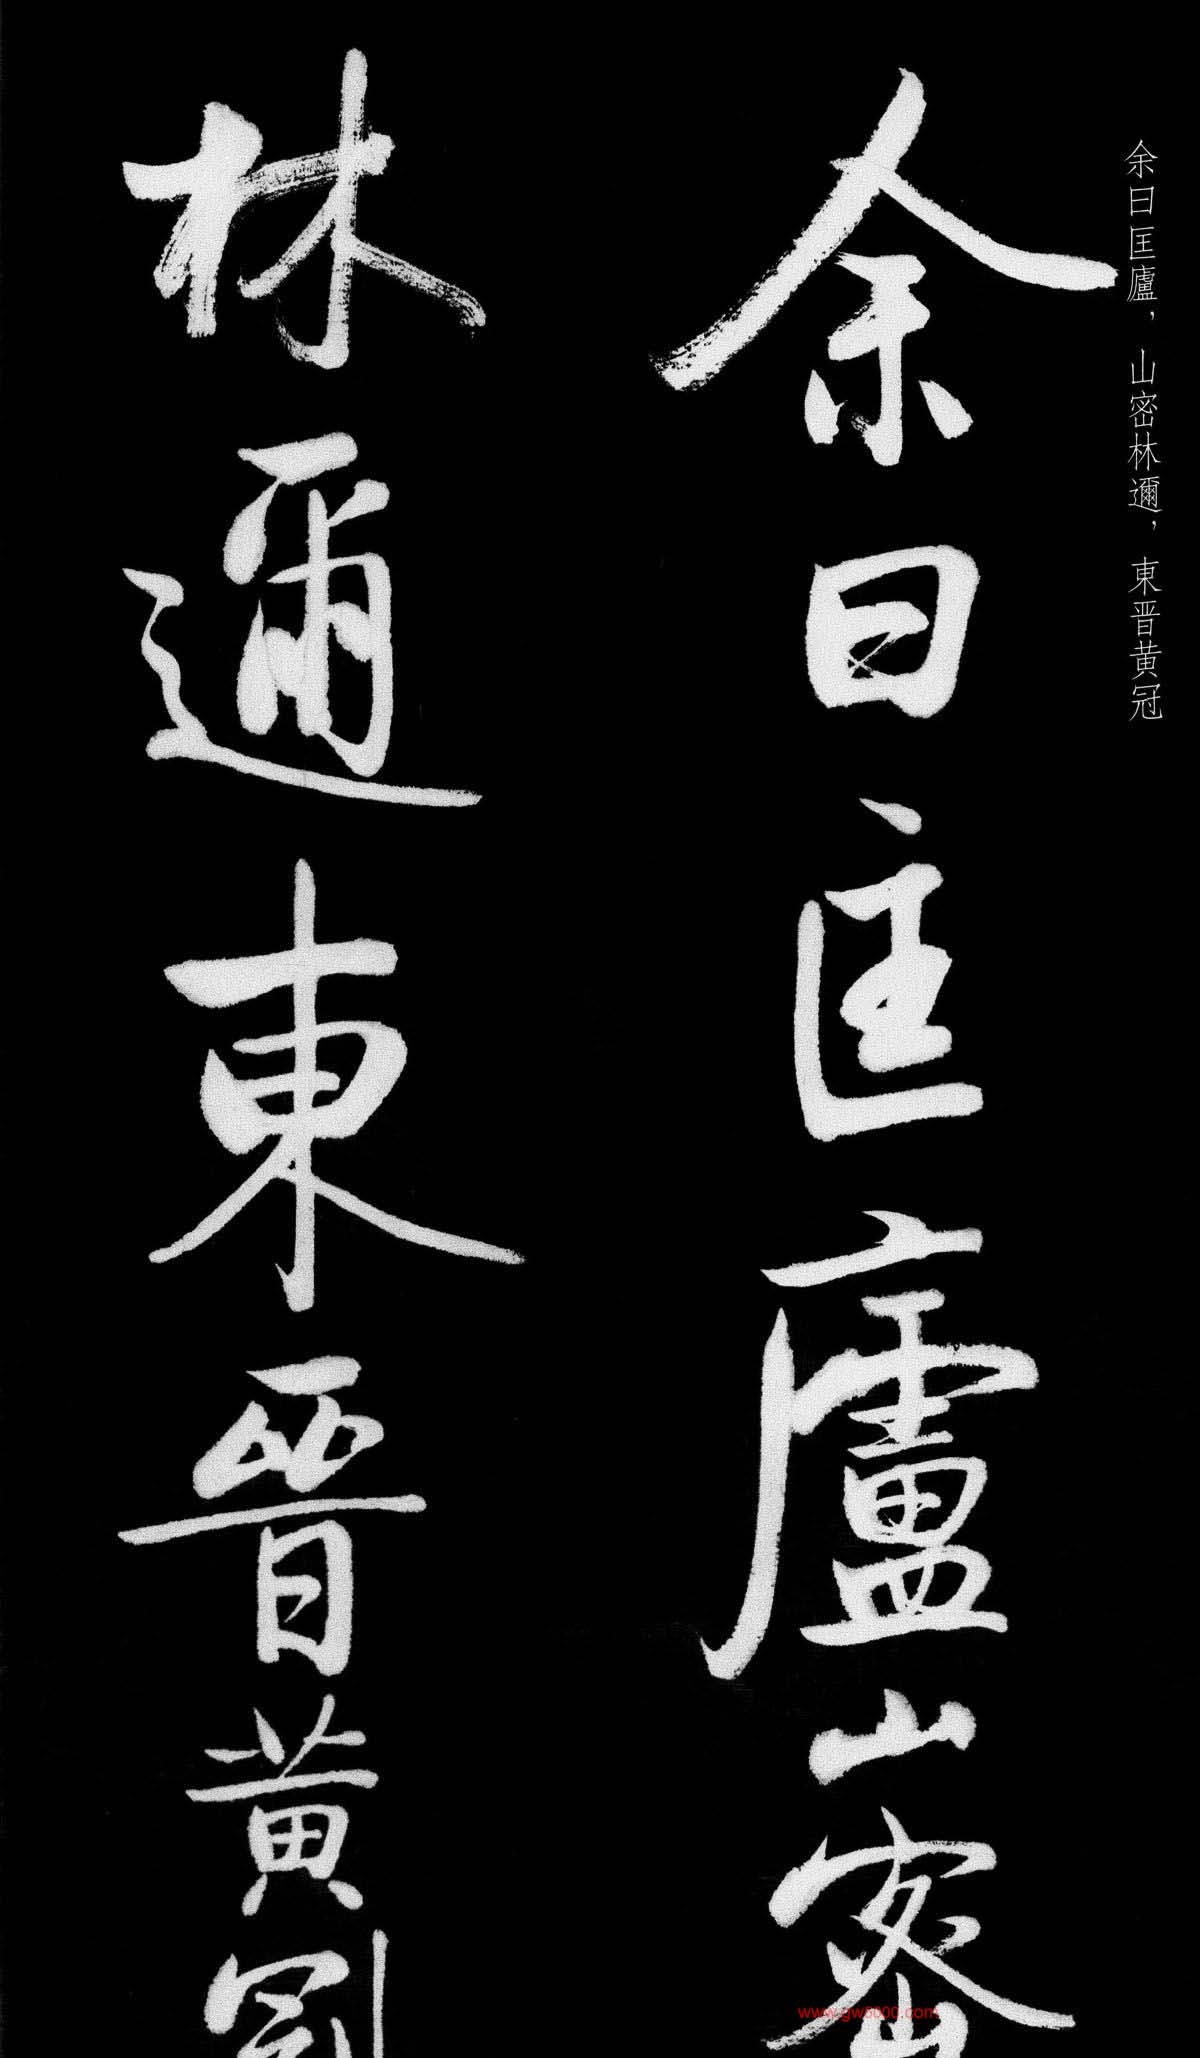 余曰匡廬，山密林邇，東晋黄冠
余曰匡廬山密
林邇東晋黄冠
www.gw5000.com